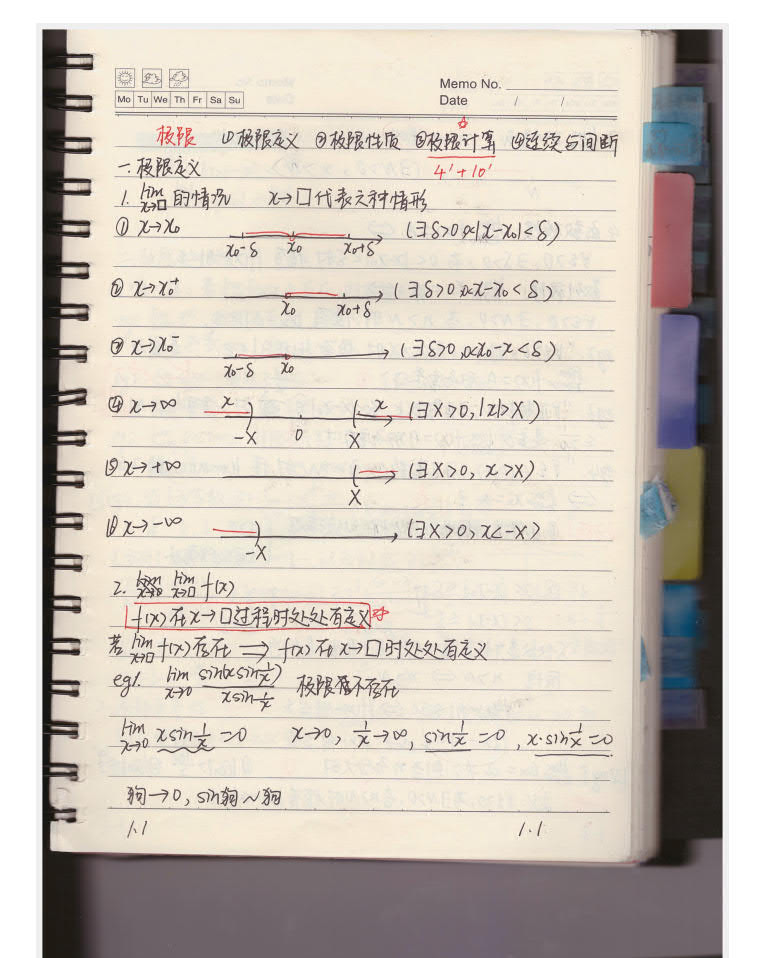 Memo No.
Mo Tu We Th Fr Sa Su
Date / /
极限 ①极限定义 ②极限性质 ③极限计算 ④连续与间断
4'+10'
一.极限定义
1. lim x→□ 的情况 x→□代表六种情形
① x→x₀ (∃δ>0,0<|x-x₀|<δ)
x₀-δ x₀ x₀+δ
② x→x₀⁺ (∃δ>0,0<x-x₀<δ)
x₀ x₀+δ
③ x→x₀⁻ (∃δ>0,0<x₀-x<δ)
x₀-δ x₀
④ x→∞ x x (∃X>0,|x|>X)
-X 0 X
⑤ x→+∞ (∃X>0, x>X)
X
⑥ x→-∞ (∃X>0,x<-X)
-X
2. lim x→□ f(x)
f(x)在x→□过程时处处有定义
若 lim x→□ f(x)存在 ⟹ f(x)在x→□时处处有定义
eg1. lim x→0 sin(x sin 1/x) / x sin 1/x 极限不存在
lim x→0 x sin 1/x =0 x→0, 1/x→∞, sin 1/x =0, x·sin 1/x =0
狗→0, sin狗~狗
1.1 1.1